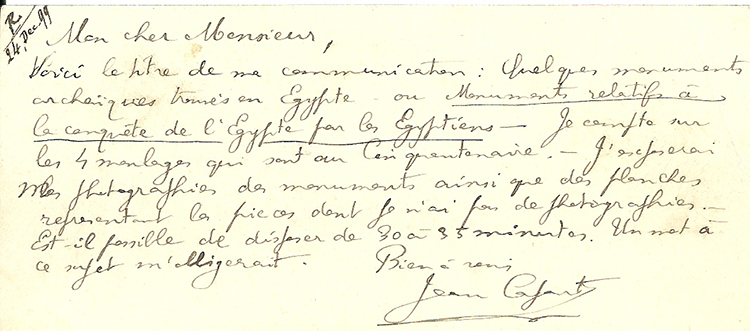 R
24, Dec 99
Mon cher Monsieur,
Voici le titre de ma communication : Quelques monuments
archaïques trouvés en Egypte – ou Monuments relatifs à
la conquête de l'Egypte par les Egyptiens – Je compte sur
les 4 moulages qui sont au Cinquantenaire. – J'exposerai
des photographies des monuments ainsi que des planches
représentant les pièces dont je n'ai pas de photographies. –
Est-il possible de disposer de 30 à 35 minutes. Un mot à
ce sujet m'obligerait. Bien à vous
Jean Capart